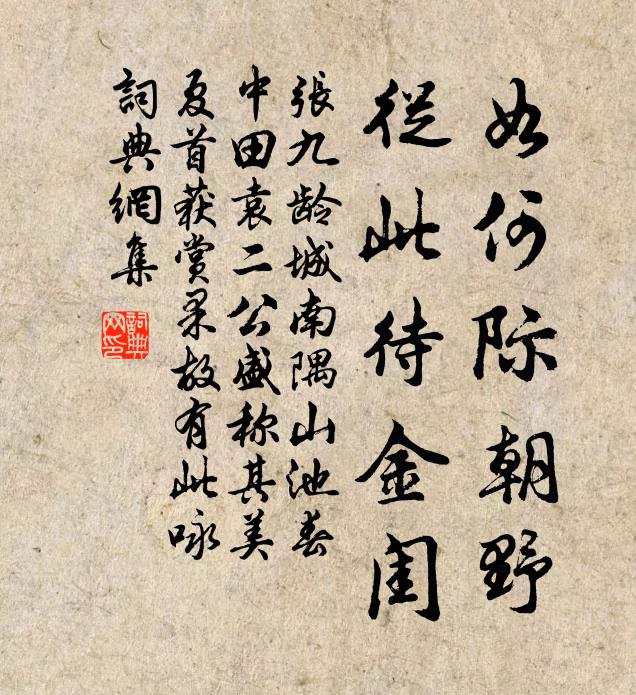 如何际朝野
從此待金閨
張九龄城南隅山池春
中田袁二公盛称其美
夏首获赏果故有此咏
詞典網集
詞典
网印